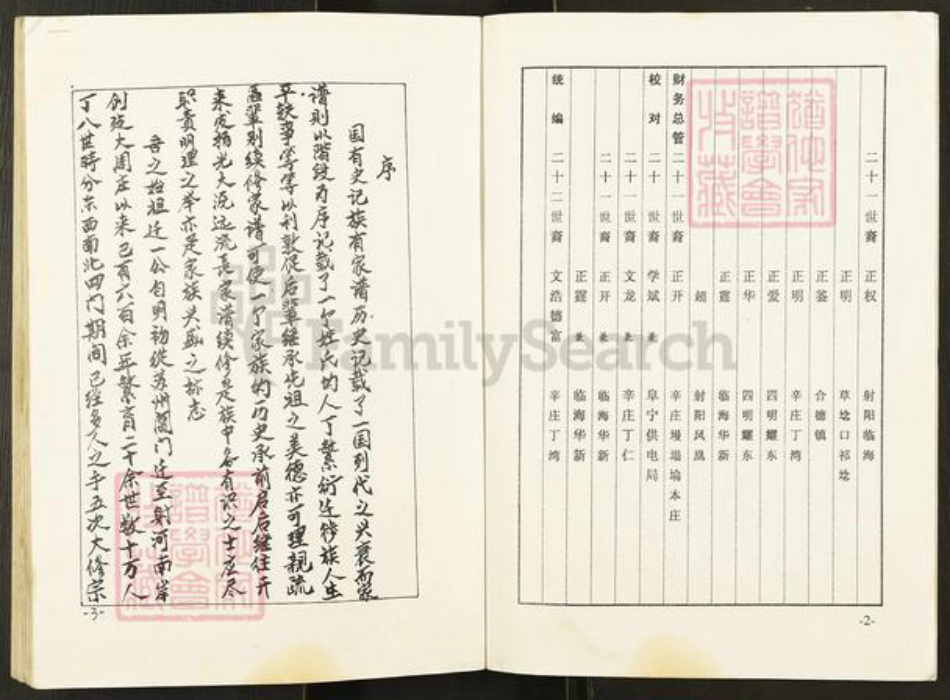 二十一世裔 正权 射阳临海
正明 草埝口祁埝
正鉴 合德镇
正明 辛庄丁湾
正爱 四明耀东
正华 四明耀东
正霞 临海华新
超 射阳凤凰
财务总管 二十一世裔 正开 辛庄墁塌埨本庄
校对 二十世裔 学斌 兼 阜宁供电局
二十一世裔 文龙 辛庄丁仁
二十一世裔 正开 兼 临海华新
正霆 兼 临海华新
统编 二十二世裔 文浩德富 辛庄丁湾
-2-
序
国有史记族有家谱历史记载了一国列代之兴衰而家
谱则以阶段为序记载了一个姓氏的人丁繁衍迁移族人生
平轶事等等以利敦促后辈继承先祖之美德亦可理亲疏
居辈别续修家谱可使一个家族的历史承前启后继往开
来发扬光大流远流长家谱续修是族中各有识之士应尽
职责明理之举亦是家族兴盛之标志
吾之始祖迁一公自明初从苏州阊门迁至射河南岸
创宅大周庄以来已有六百余年繁育二十余世数十万人
丁八世时分东西南北四门期间已经多人之手五次大修宗
-3-
譜學會
收藏
FamilySearch